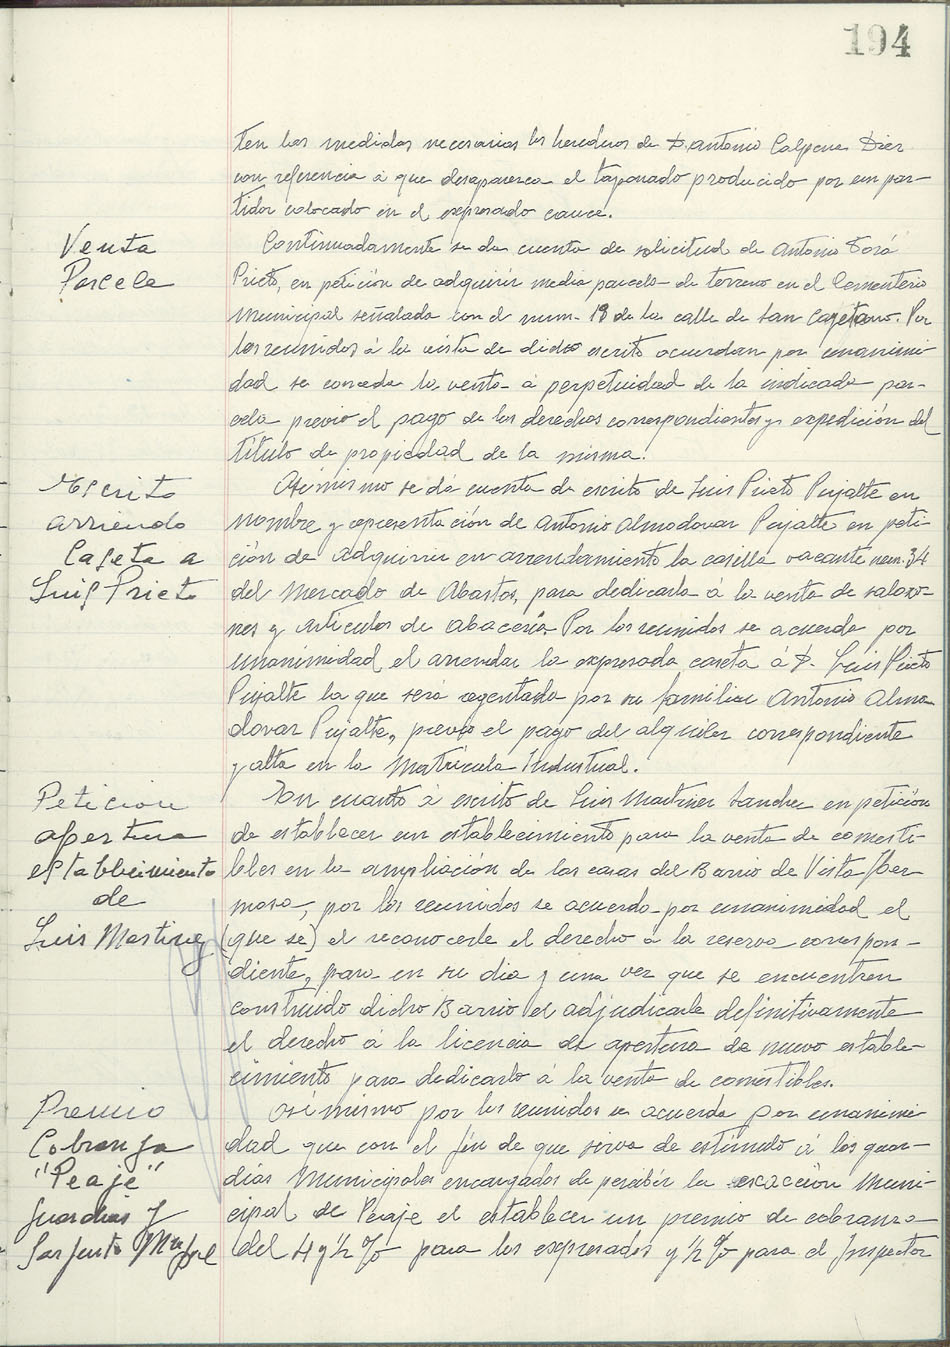 194
ten las medidas necesarias los herederos de D. Antonio Calpena Diez
con referencia a que desaparezca el taponado producido por em par-
tidor colocado en el expresado cauce.
Venta
Parcela
Continuadamente se da cuenta de solicitud de Antonio Torá
Prieto, en petición de adquirir media parcela de terreno en el Cementerio
Municipal señalada con el num. 18 de la calle de San Cayetano. Por
los reunidos á la vista de dicho escrito acuerdan por unanimi-
dad se conceda la venta a perpetuidad de la indicada par-
cela previo el pago de los derechos correspondientes y expedición del
título de propiedad de la misma.
Escrito
arriendo
Caseta a
Luis Prieto
Asimismo se dá cuenta de escrito de Luis Prieto Pujalte en
nombre y representación de Antonio Almodovar Pujalte en peti-
ción de adquirir en arrendamiento la casilla vacante num. 34
del Mercado de Abastos, para dedicarla á la venta de salazo-
nes y artículos de abacería. Por los reunidos se acuerda por
unanimidad el arrendar la expresada caseta á D. Luis Prieto
Pujalte la que será regentada por su familiar Antonio Almo-
dovar Pujalte, previo el pago del alquiler correspondiente
y alta en la Matrícula Industrial.
Peticion
apertura
establecimiento
de
Luis Martinez
En cuanto á escrito de Luis Martinez Sanchez en petición
de establecer un establecimiento para la venta de comesti-
bles en la ampliación de las casas del Barrio de Vista Her
mosa, por los reunidos se acuerda por unanimidad el
(que se) el reconocerle el derecho a la reserva correspon-
diente, para en su dia y una vez que se encuentren
construido dicho Barrio el adjudicarle definitivamente
el derecho á la licencia de apertura de nuevo estable-
cimiento para dedicarlo á la venta de comestibles.
Premio
Cobranza
"Peaje"
Guardias y
Sargento Mupal
Asi mismo por los reunidos se acuerda por unanimi-
dad que con el fin de que sirva de estímulo á los guar-
dias Municipales encargados de percibir la exacción Muni-
cipal de Peaje el establecer un premio de cobranza
del 4 y ½ % para los expresados y ½ % para el Inspector